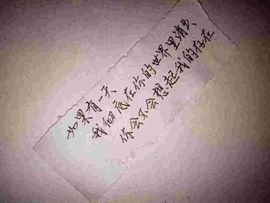 如果有一天、
我彻底在你的世界里消失、
你会不会想起我的存在